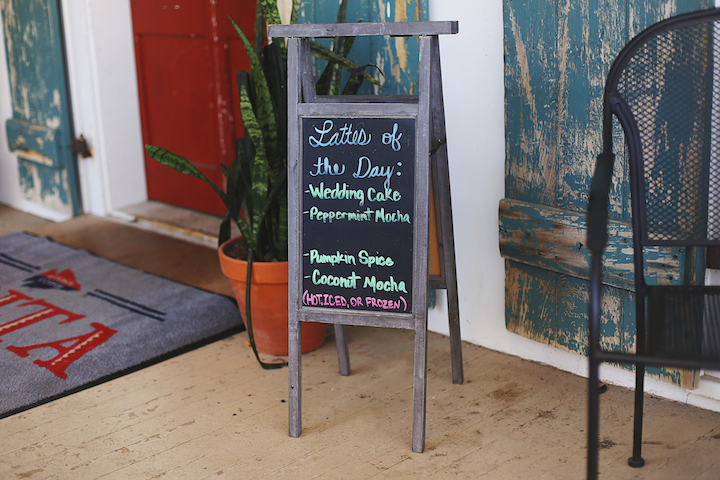 Lattes of
the Day:
-Wedding Cake
-Peppermint Mocha
-Pumpkin Spice
-Coconut Mocha
(HOT, ICED, OR FROZEN)